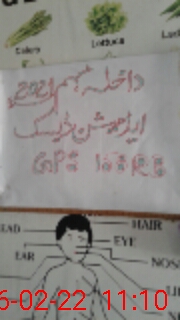 Celery Lettuce
داخلہ مہم 2021
ایڈمیشن ڈیسک
GPS
HEAD HAIR
EYE
EAR
NOSE
6-02-22 11:10